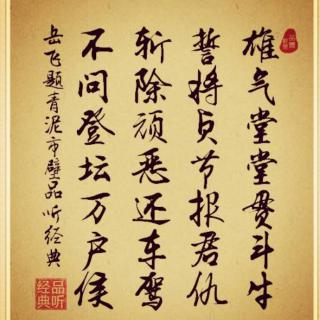 雄气堂堂贯斗牛
誓将贞节报君仇
斩除顽恶还车驾
不问登坛万户侯
岳飞题青泥市壁品听经典
品听
经典